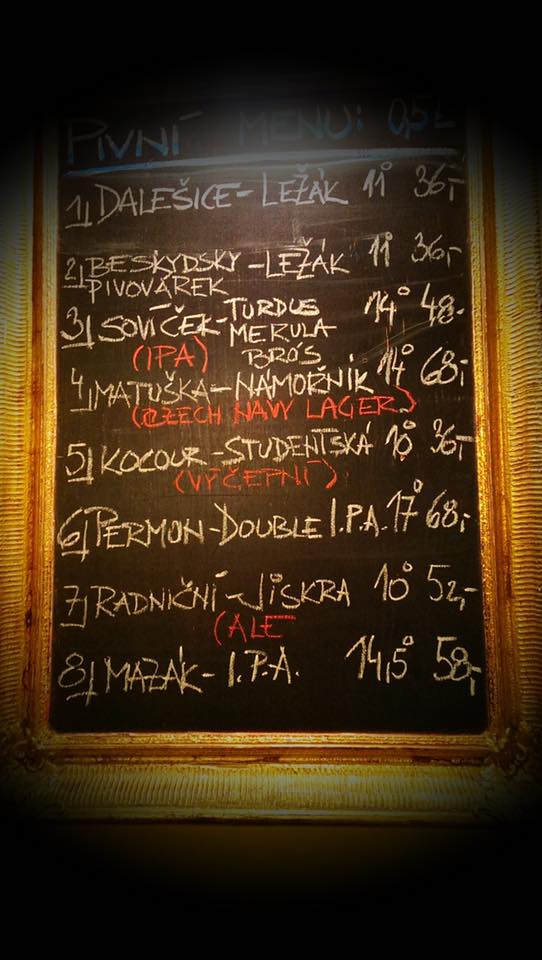 PIVNÍ MENU: 0,5L
1) DALEŠICE - LEŽÁK 11° 36,-
2) BESKYDSKY - LEŽÁK 11° 36,-
PIVOVÁREK
3) SOVÍČEK - TURDUS 14° 48.-
MERULA
(IPA) BRO'S
4) MATUŠKA - NÁMOŘNÍK 14° 68,-
(CZECH NAVY LAGER)
5) KOCOUR - STUDENTSKÁ 10° 36,-
(VÝČEPNÍ)
6) PERMON - DOUBLE I.P.A. 17° 68,-
7) RADNIČNÍ - JISKRA 10° 52,-
(ALE
8) MAZÁK - I.P.A. 14,5° 58,-